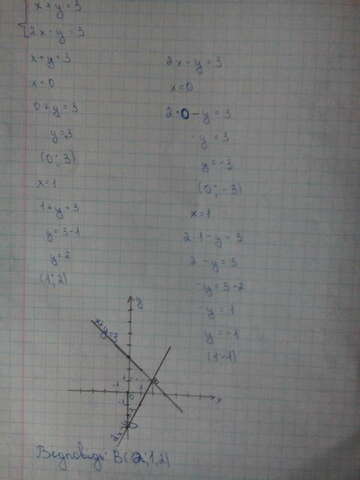 x+y=3
2x-y=3
x+y=3
x=0
0+y=3
y=3
(0; 3)
x=1
1+y=3
y=3-1
y=2
(1; 2)
2x-y=3
x=0
2·0-y=3
-y=3
y=-3
(0; -3)
x=1
2·1-y=3
2-y=3
-y=3-2
-y=1
y=-1
(1;-1)
y
x+y=3
x
0
Відповідь: B(2,1,2)